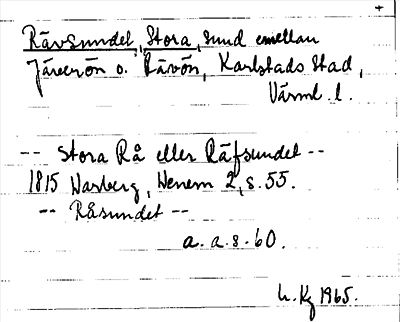 Rävsundet, Stora, sund emellan
Järerön o. Råvön, Karlstads stad,
Värml. l.
-- Stora Rå eller Räfsundet --
1815 Warberg, Wenern 2, s. 55.
-- Råsundet --
a. a. s. 60.
h. Kg 1965.